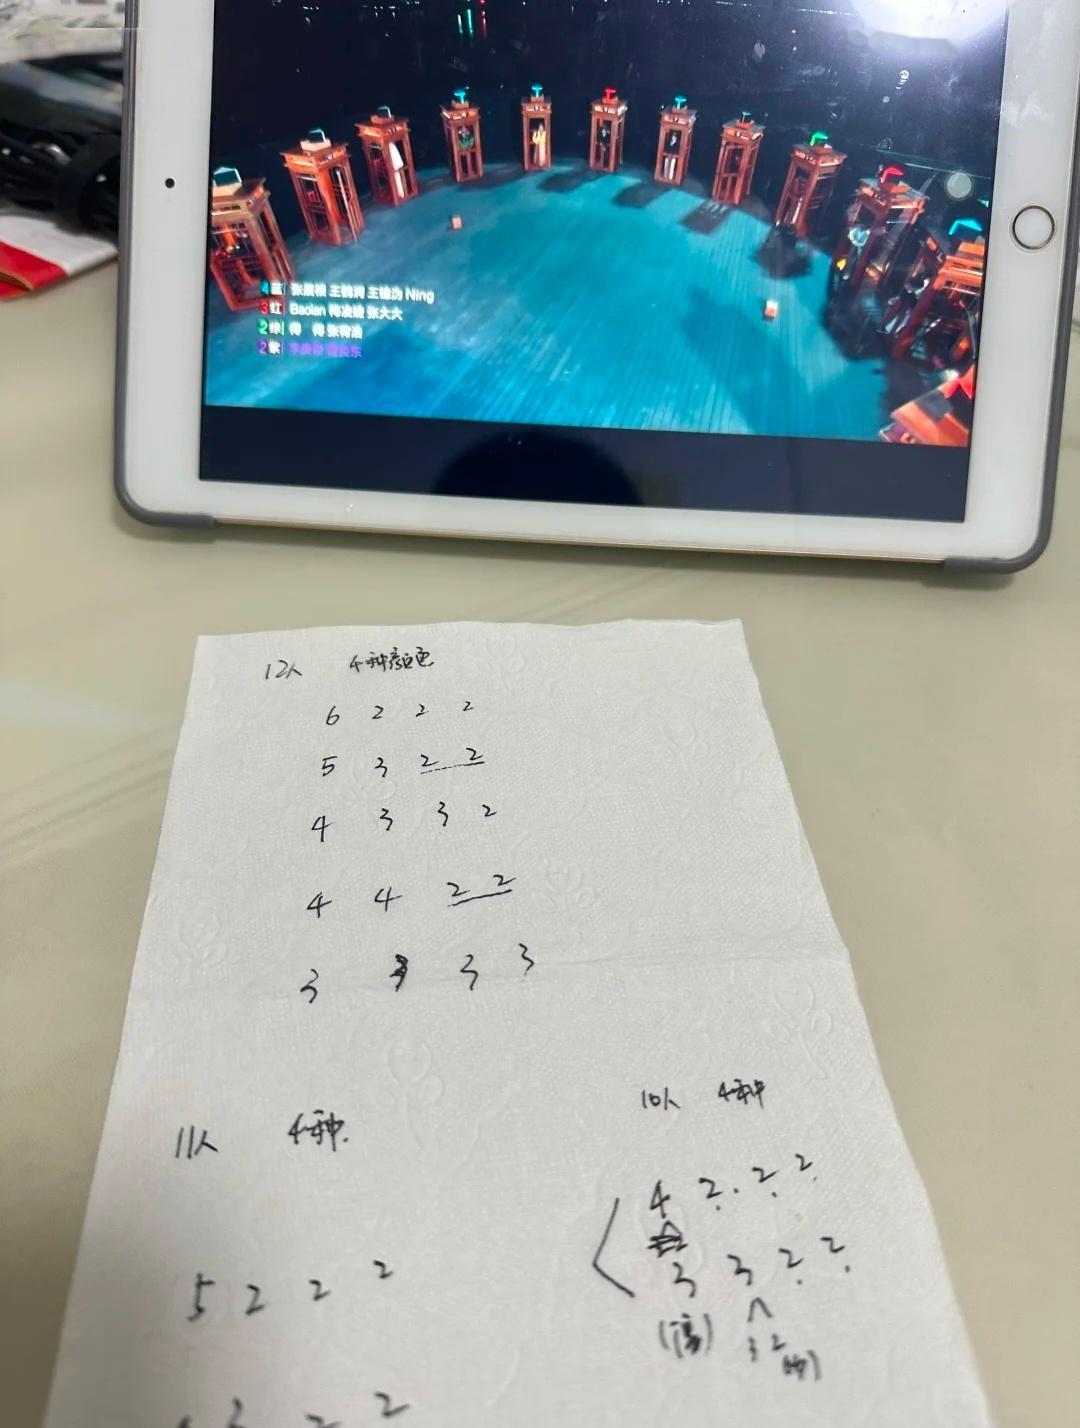 4 蓝 张晨 王鹤润 王 Ning
3 红 Baolan 梅凌 张大大
2 绿 得 得 张 浩
2 紫 李庚希 东
12人 4种颜色
6 2 2 2
5 3 2 2
4 3 3 2
4 4 2 2
3 3 3 3
11人 4种.
5 2 2 2
3 2 2
10人 4种
4 2. 2 2
3 3 2 2
3 2